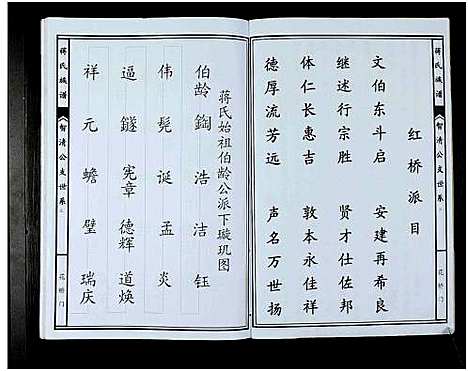 蒋氏族谱
智清公支世系
花桥门
红桥派目
文伯东斗启 安建再希良
继述行宗胜 贤才仕佐邦
体仁长惠吉 敦本永佳祥
德厚流芳远 声名万世扬
蒋氏始祖伯龄公派下璇玑图
伯龄 鋾 浩 洁 钰
伟 髡 诞 孟 炎
逼 鐩 宪章 德辉 道焕
祥 元 蟾 璧 瑞庆
蒋氏族谱
智清公支世系
花桥门